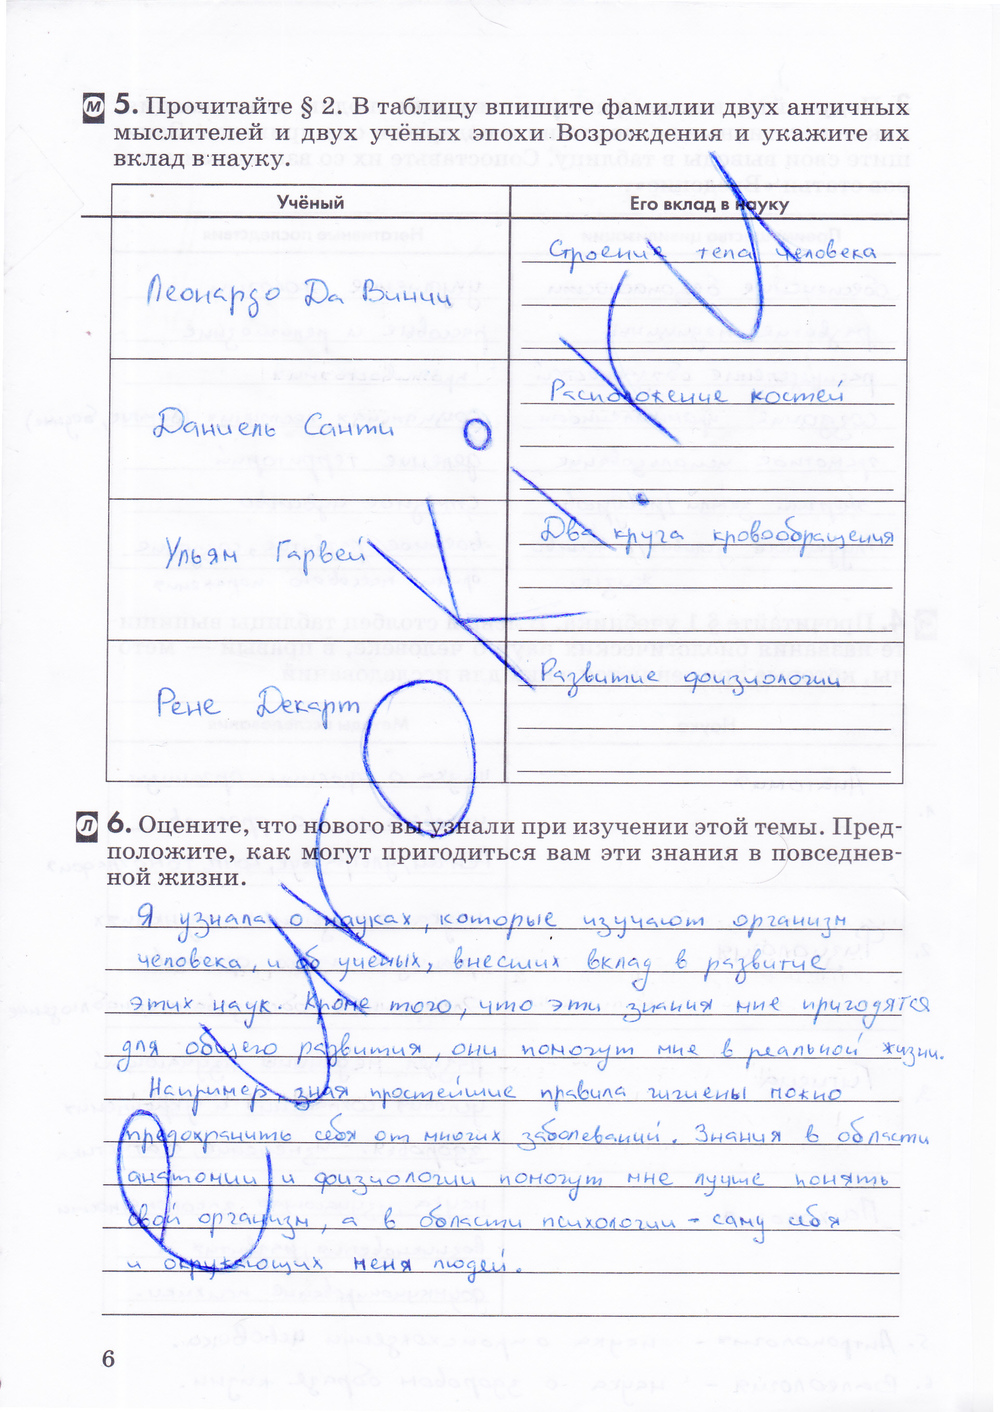 М 5. Прочитайте § 2. В таблицу впишите фамилии двух античных
мыслителей и двух учёных эпохи Возрождения и укажите их
вклад в науку.
Учёный Его вклад в науку
Леонардо Да Винчи Строение тела человека
Даниель Санти Расположение костей
Ульям Гарвей Два круга кровообращения
Рене Декарт Развитие физиологии
Л 6. Оцените, что нового вы узнали при изучении этой темы. Пред-
положите, как могут пригодиться вам эти знания в повседнев-
ной жизни.
Я узнала о науках, которые изучают организм
человека, и об учёных, внесших вклад в развитие
этих наук. Кроме того, что эти знания мне пригодятся
для общего развития, они помогут мне в реальной жизни.
Например, зная простейшие правила гигиены можно
предохранить себя от многих заболеваний. Знания в области
анатомии и физиологии помогут мне лучше понять
свой организм, а в области психологии - саму себя
и окружающих меня людей.
6